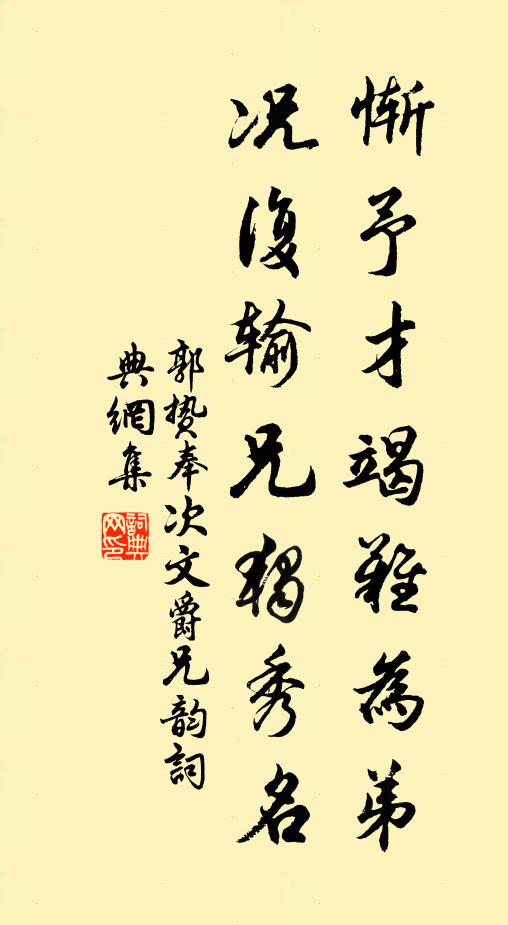 慚予才竭難為弟
况復輸兄獨秀名
郭贄奉次文爵兄韵詞
典網集
詞典网印